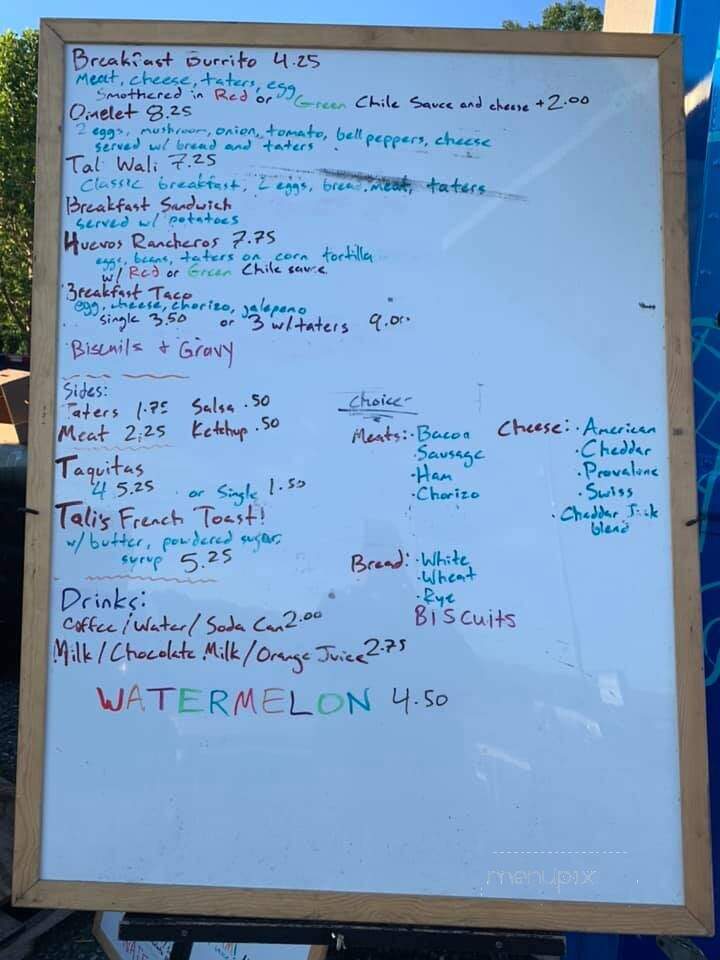 Breakfast Burrito 4.25
Meat, cheese, taters, egg
Smothered in Red or Green Chile Sauce and cheese +2.00
Omelet 8.25
2 eggs, mushroom, onion, tomato, bell peppers, cheese
served w/ bread and taters
Tal Wali 7.25
Classic breakfast, 2 eggs, bread, meat, taters
Breakfast Sandwich
served w/ potatoes
Huevos Rancheros 7.75
eggs, beans, taters on corn tortilla
w/ Red or Green Chile sauce
Breakfast Taco
egg, cheese, chorizo, jalepeno
single 3.50 or 3 w/taters 9.00
Biscuits + Gravy
Sides:
Taters 1.75 Salsa .50
Meat 2.25 Ketchup .50
Taquitas
4 5.25 or Single 1.50
Tali's French Toast!
w/ butter, powdered sugar,
syrup 5.25
Choice
Meats: · Bacon
· Sausage
· Ham
· Chorizo
Cheese: · American
· Cheddar
· Provalone
· Swiss
· Cheddar Jack
blend
Bread: · White
· Wheat
· Rye
BISCUITS
Drinks:
Coffee / Water / Soda Can 2.00
Milk / Chocolate Milk / Orange Juice 2.75
WATERMELON 4.50
menupix